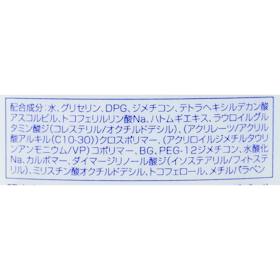 配合成分:水、グリセリン、DPG、ジメチコン、テトラヘキシルデカン酸
アスコルビル、トコフェリルリン酸Na、ハトムギエキス、ラウロイルグル
タミン酸ジ(コレステリル/オクチルドデシル)、(アクリレーツ/アクリル
酸アルキル(C10-30))クロスポリマー、(アクリロイルジメチルタウリ
ンアンモニウム/VP)コポリマー、BG、PEG-12ジメチコン、水酸化
Na、カルボマー、ダイマージリノール酸ジ(イソステアリル/フィトステ
リル)、ミリスチン酸オクチルドデシル、トコフェロール、メチルパラベン